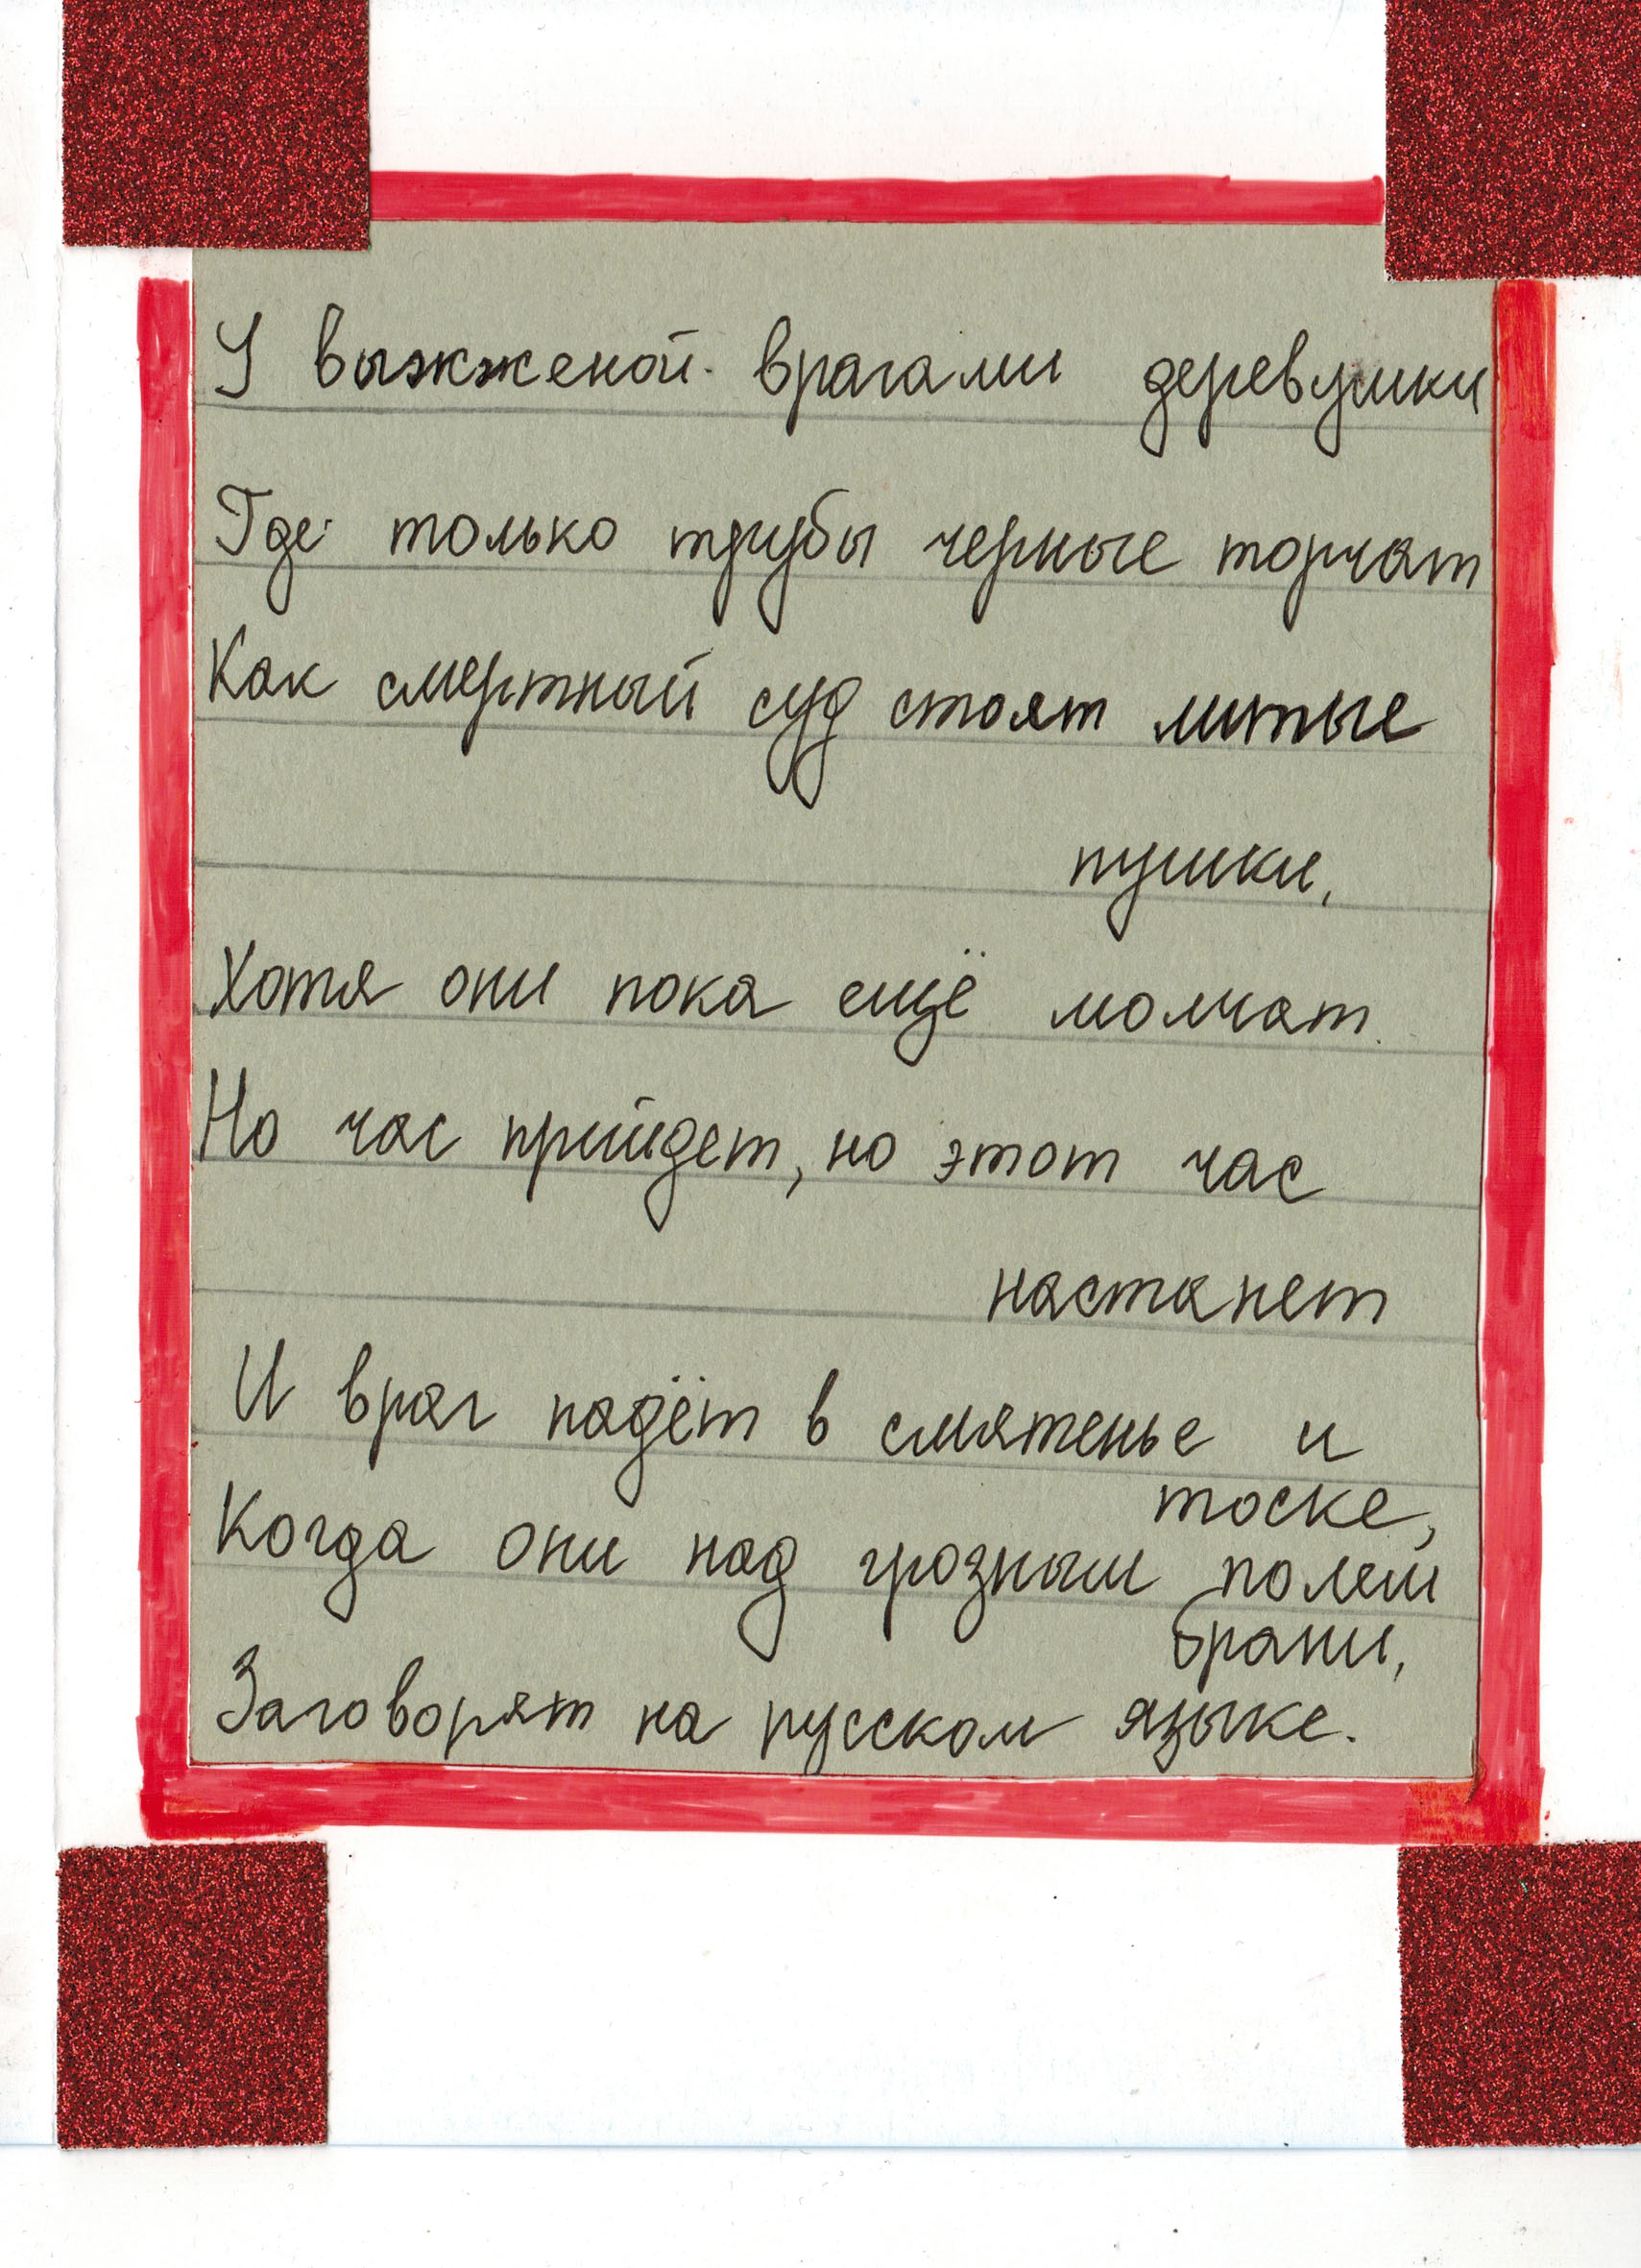 У выжженой врагами деревушки
Где только трубы черные торчат
Как смертный суд стоят литые
пушки,
Хотя они пока ещё молчат.
Но час прийдет, но этот час
настанет
И враг падёт в смятенье и
тоске,
Когда они над грозным полем
брани,
Заговорят на русском языке.